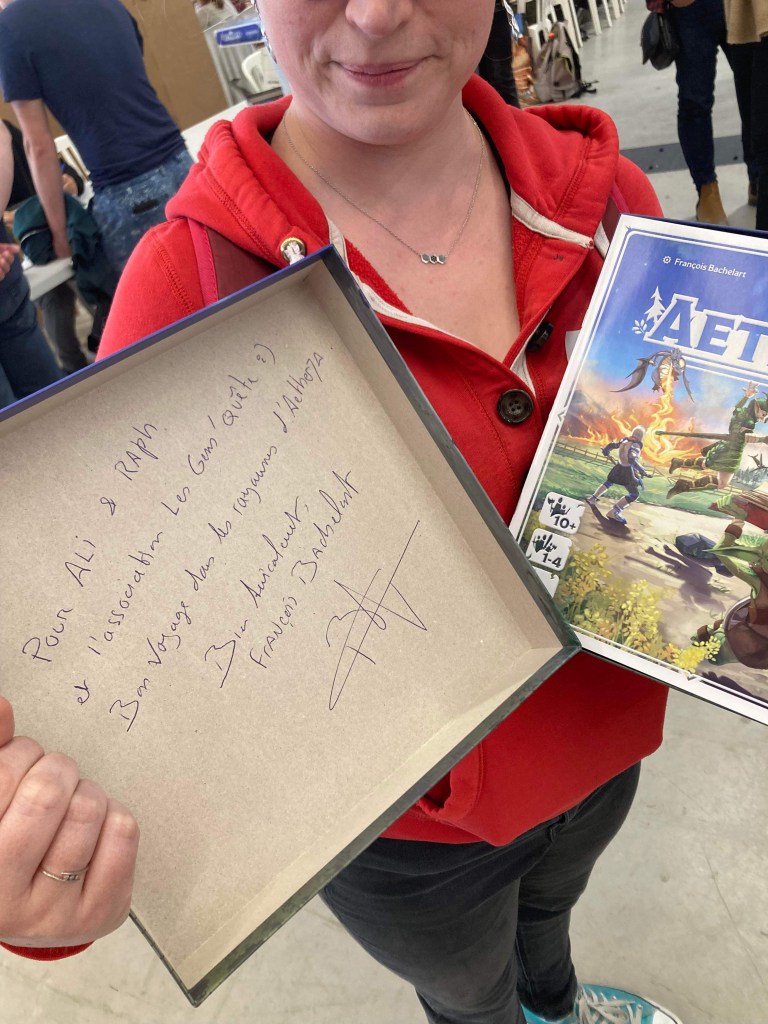 Pour ALi & RAph.
et l'association Les Gens' Quête :)
Bon voyage dans les royaumes d'Aethorya
Bien Amicalement,
FRANÇOIS BACHELART
François Bachelart
AET
10+
1-4